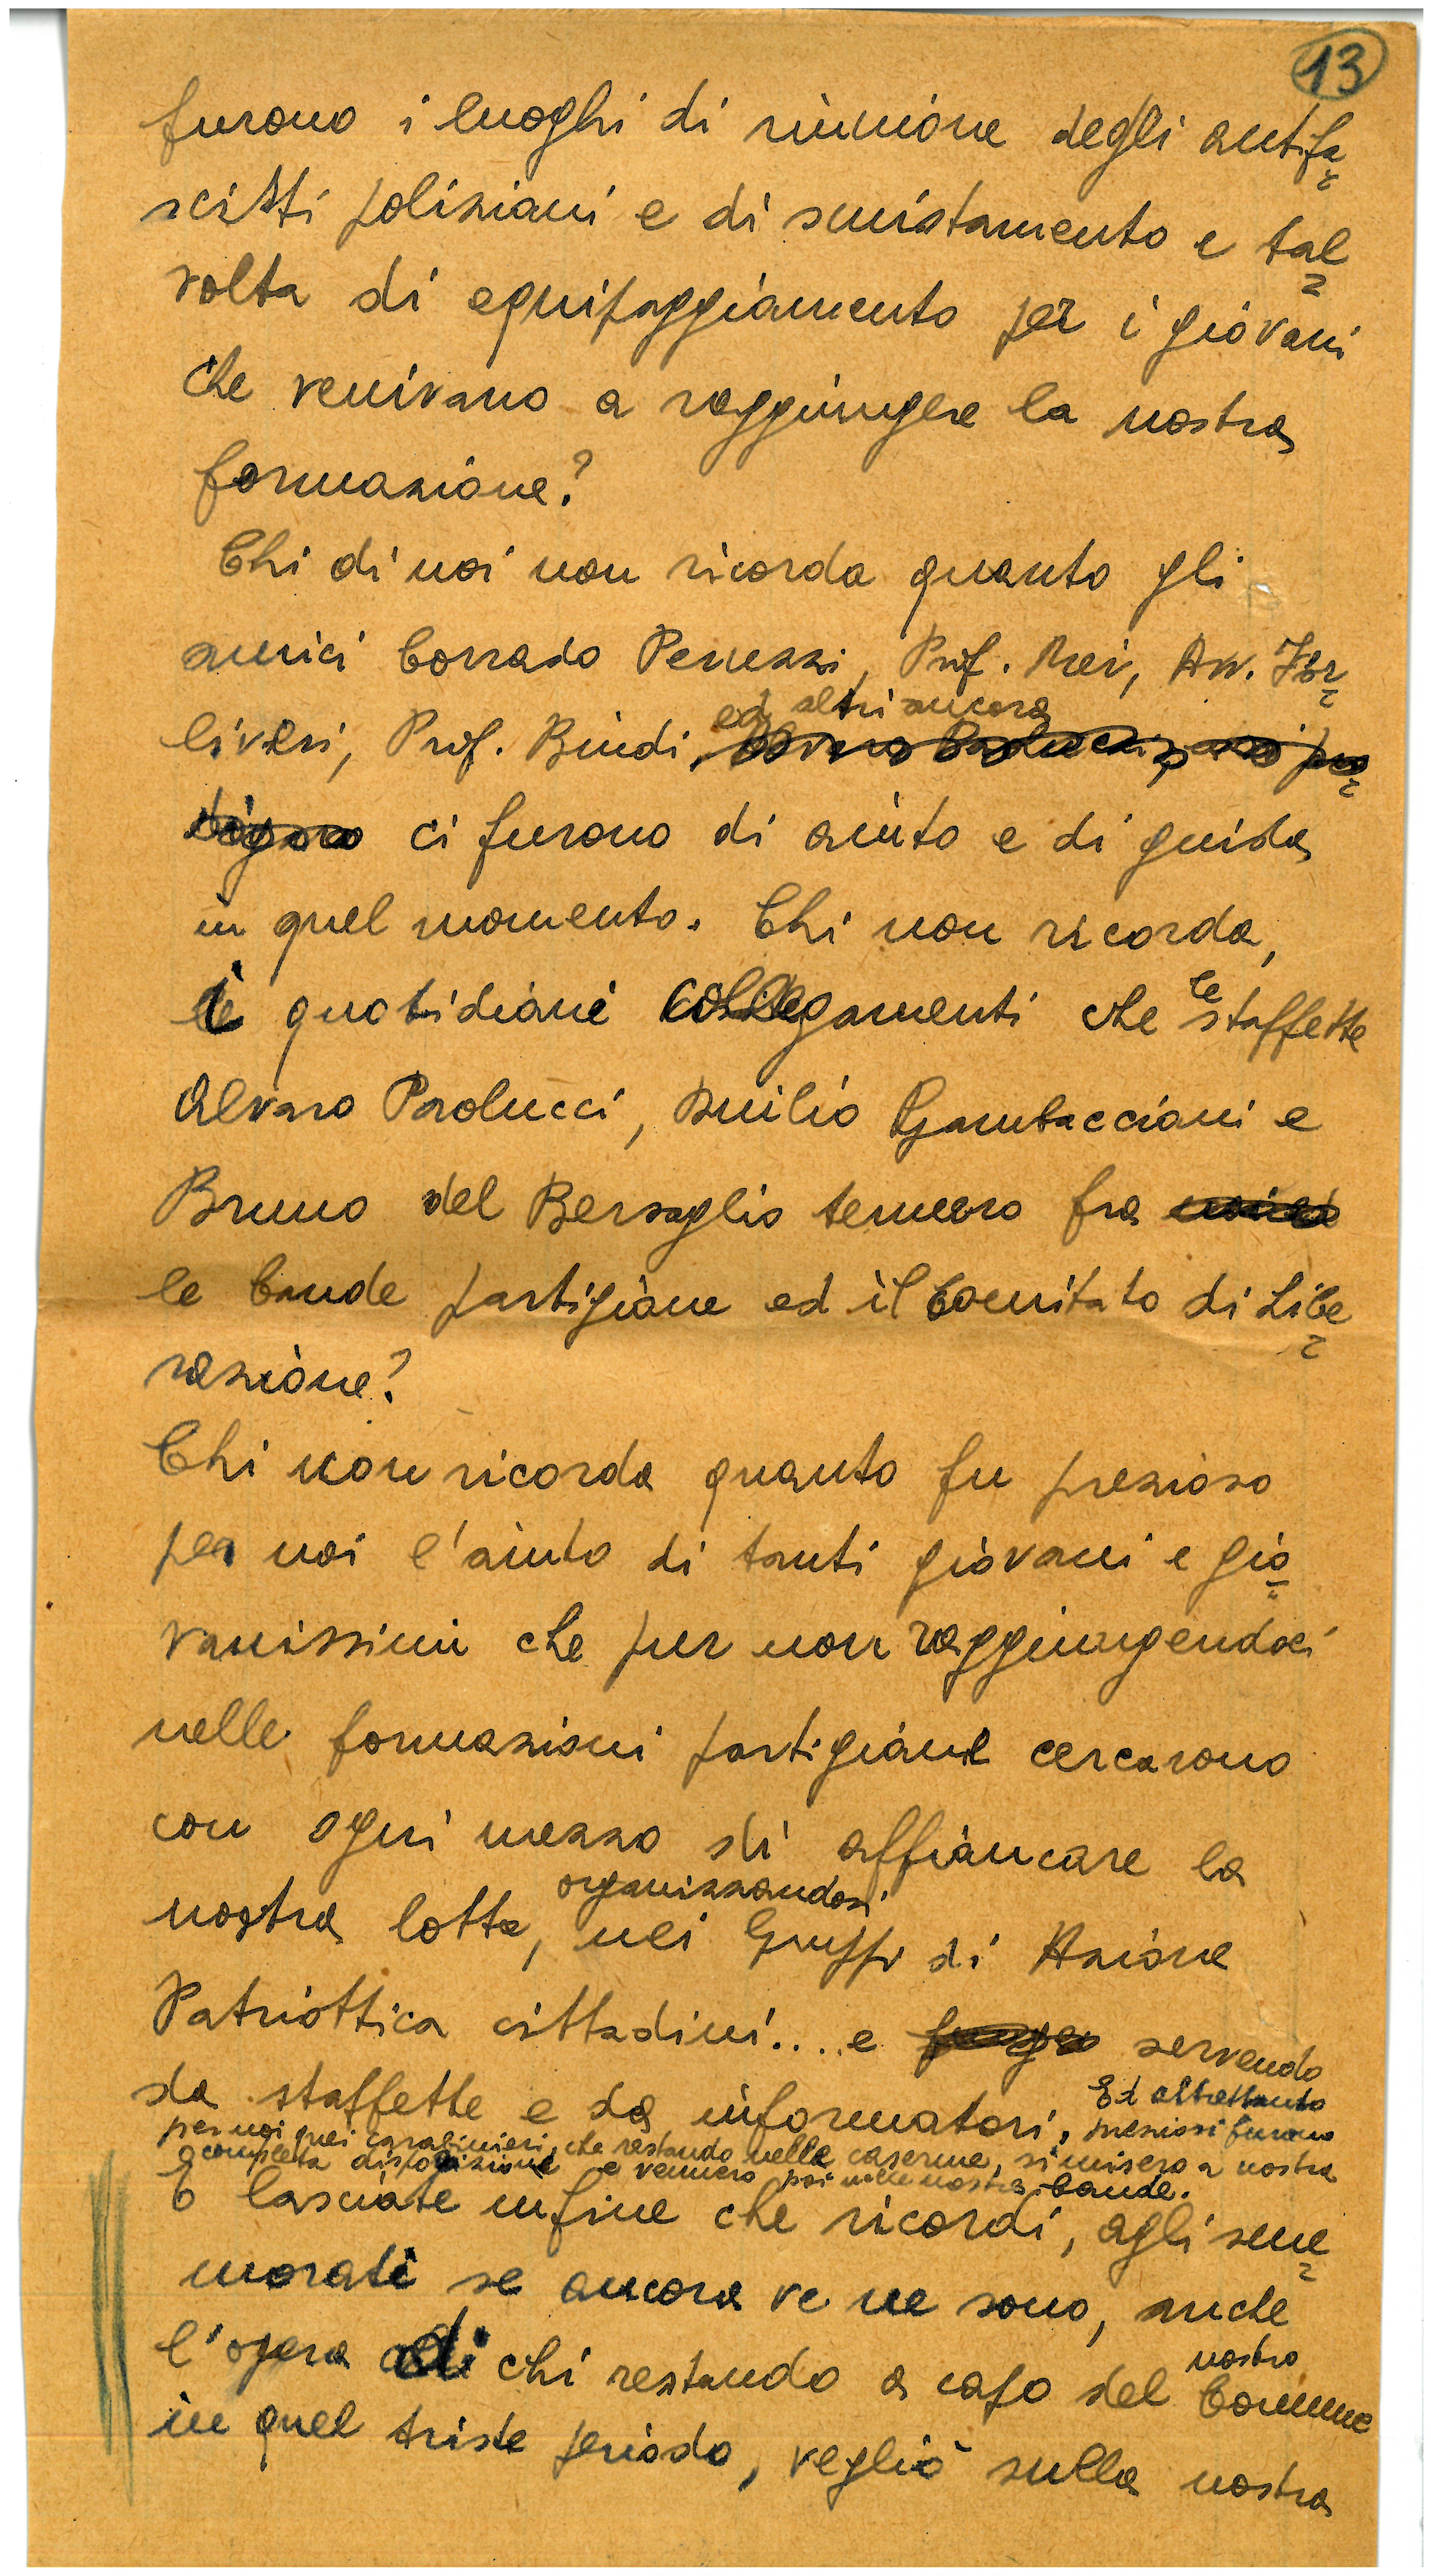 13
furono i luoghi di riunione degli antifa=
scisti poliziani e di smistamento e tal=
volta di equipaggiamento per i giovani
che venivano a raggiungere la nostra
formazione?
Chi di noi non ricorda quanto gli
amici Corrado Peruzzi, Prof. Mei, Avv. For=
liveri, Prof. Bindi, ed altri ancora
ci furono di aiuto e di guida
in quel momento. Chi non ricorda,
i quotidiani collegamenti che le staffette
Alvaro Paolucci, Duilio Gambacciani e
Bruno del Bersaglio tennero fra
le bande partigiane ed il Comitato di Libe=
razione?
Chi non ricorda quanto fu prezioso
per noi l'aiuto di tanti giovani e gio=
vanissimi che pur non raggiungendoci
nelle formazioni partigiane cercarono
con ogni mezzo di affiancare la
nostra lotta, organizzandosi nei Gruppi di Azione
Patriottica cittadini.... e servendo
da staffette e da informatori. Ed altrettanto preziosi furono
per noi quei carabinieri, che restando nelle caserme, si misero a nostra
completa disposizione e vennero poi nelle nostre bande.
E lasciate infine che ricordi, agli sme=
morati se ancora ve ne sono, anche
l'opera di chi restando a capo del nostro Comune
in quel triste periodo, vegliò sulla nostra